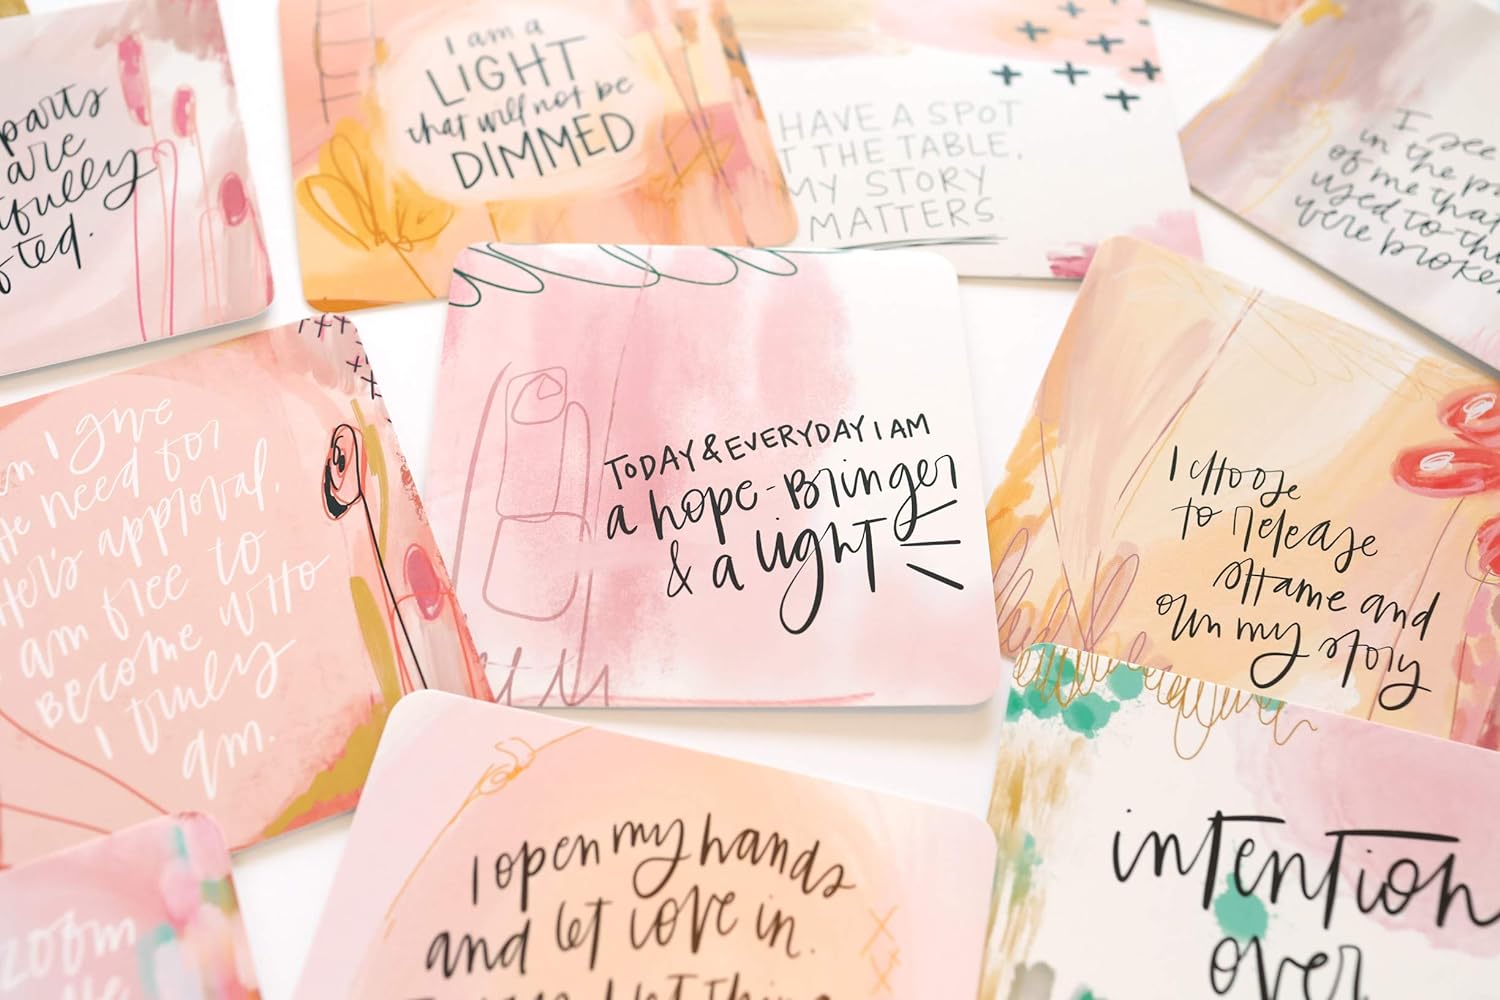 parts
are
fted.
I am a
LIGHT
that will not be
DIMMED
HAVE A SPOT
T THE TABLE.
MY STORY
MATTERS.
I see
in the p
of me that
used to th
were broke
n I give
he need for
her's approval,
am free to
become who
I truly
am.
TODAY & EVERYDAY I AM
a hope-bringer
& a light
I choose
to release
shame and
own my story
I open my hands
and let love in.
intention
over